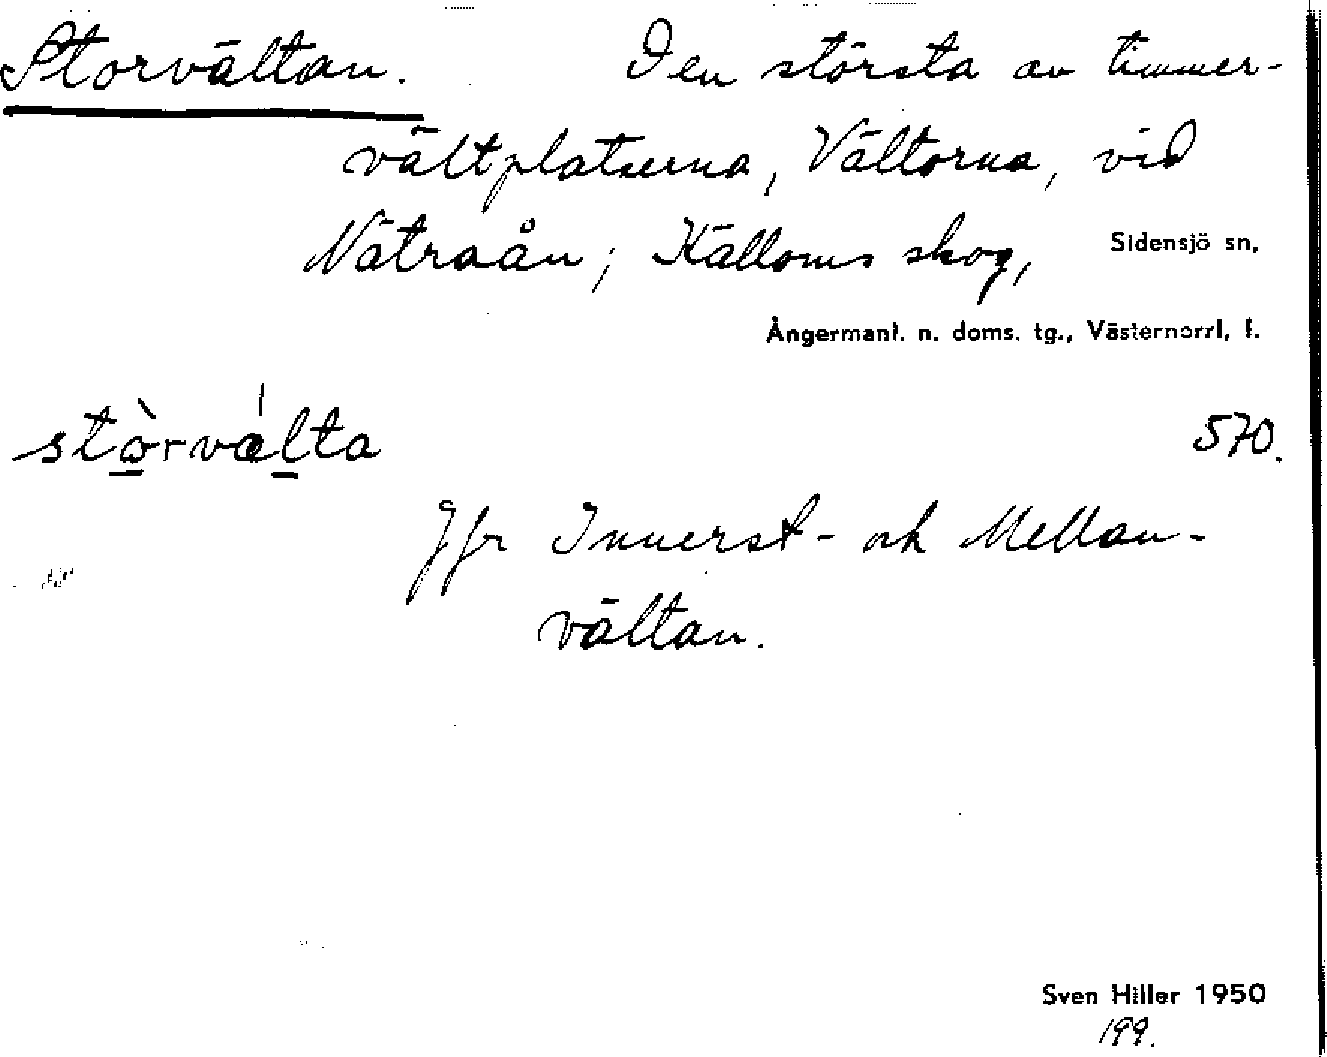 Storvältan. Den största av timmer-
vältplatserna, Vältorna, vid
Nätraån; Källoms skog, Sidensjö sn,
Ångermanl. n. doms. tg., Västernorrl. l.
stòrvælta 570.
Jfr Innerst- och Mellan-
vältan.
Sven Hiller 1950
199.